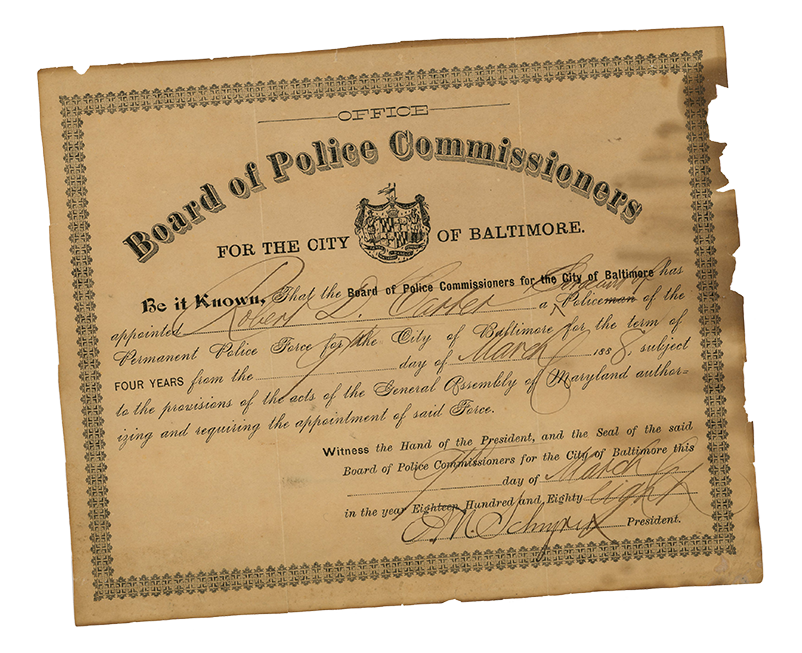 OFFICE
Board of Police Commissioners
FOR THE CITY OF BALTIMORE.
Be it Known, That the Board of Police Commissioners for the City of Baltimore has
appointed Robert D. Carter a Policeman of the
Permanent Police Force for the City of Baltimore for the term of
FOUR YEARS from the 9th day of March 1888, subject
to the provisions of the acts of the General Assembly of Maryland author-
izing and requiring the appointment of said Force.
Witness the Hand of the President, and the Seal of the said
Board of Police Commissioners for the City of Baltimore this
9th day of March
in the year Eighteen Hundred and Eighty eight
President.